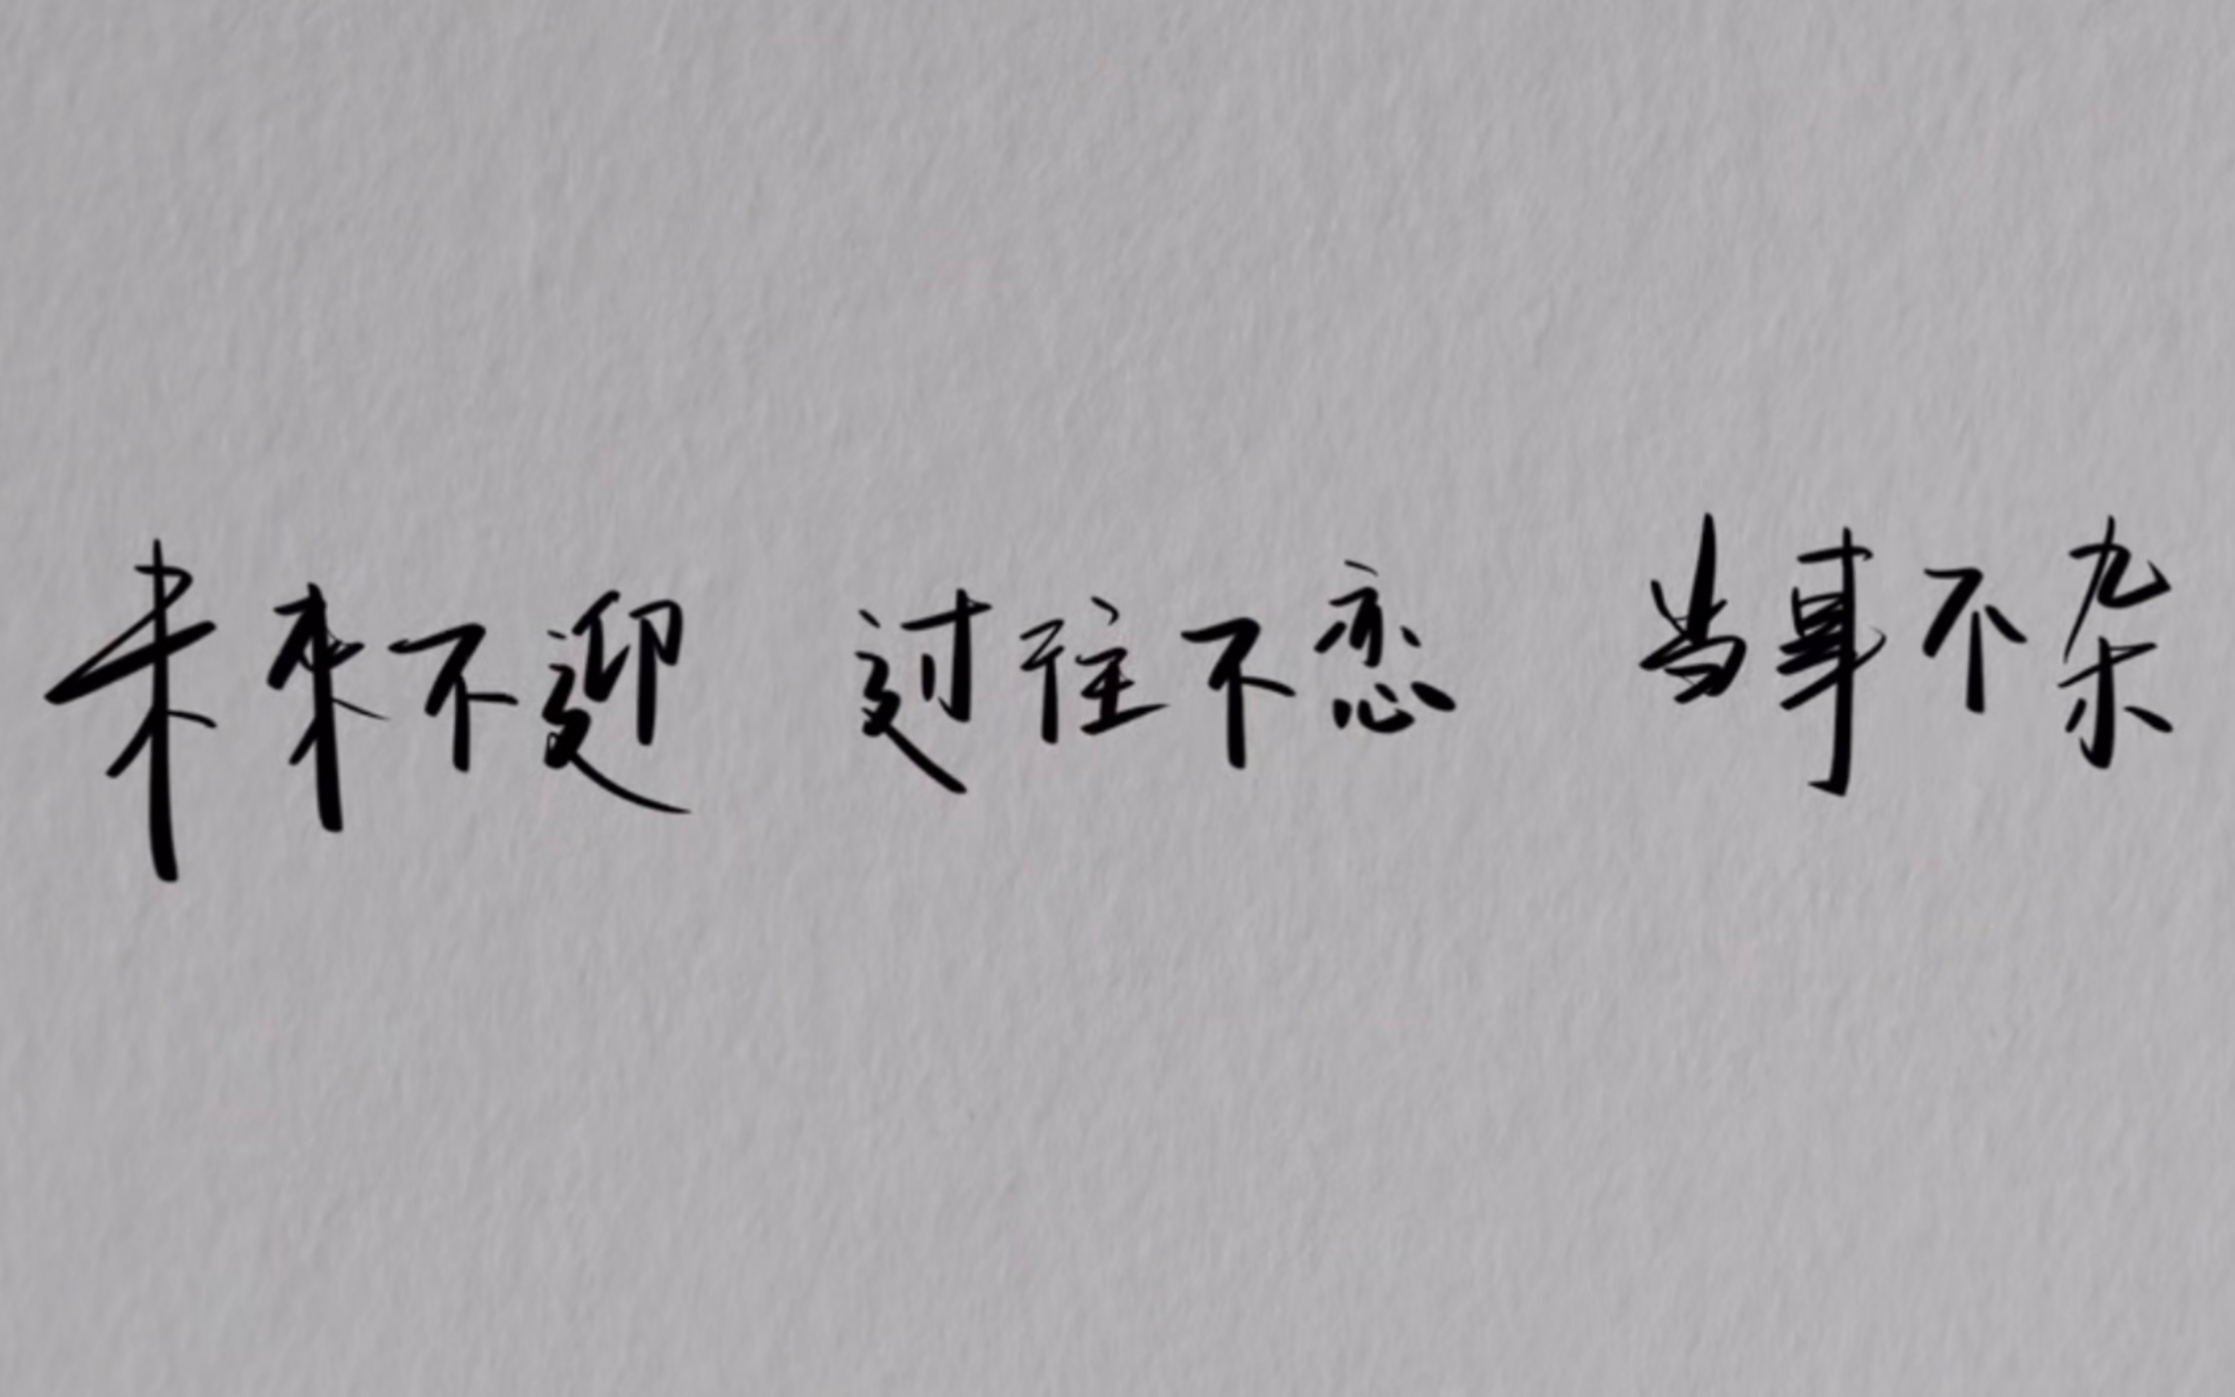 未来不迎 过往不恋 当事不杂